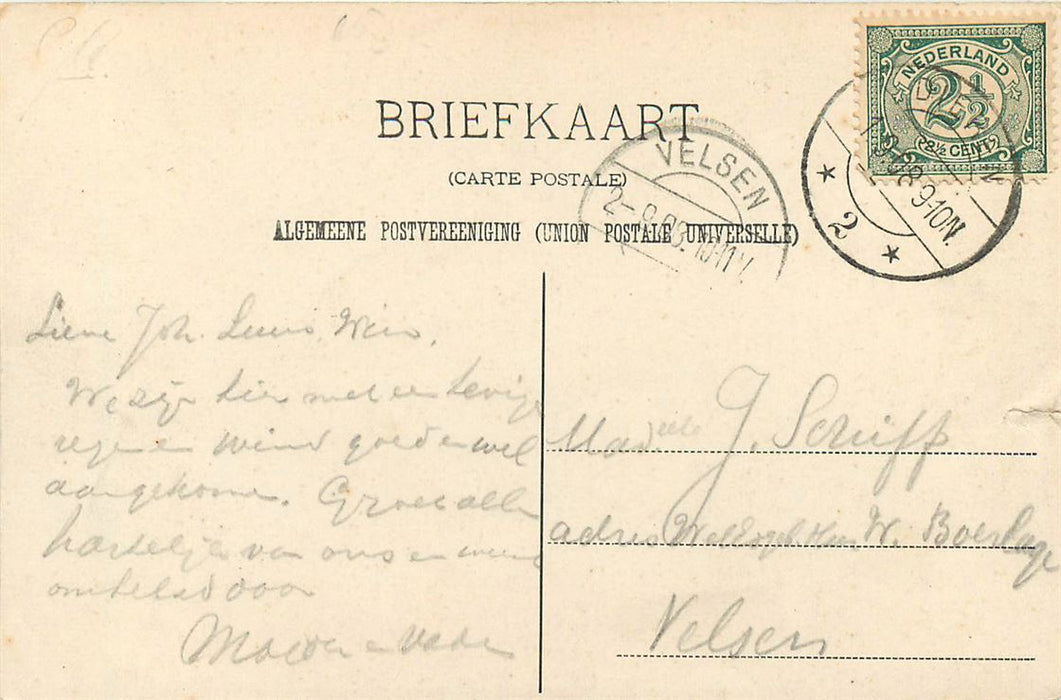 BRIEFKAART
(CARTE POSTALE)
ALGEMEENE POSTVEREENIGING (UNION POSTALE UNIVERSELLE)
NEDERLAND
2½
(2½ CENT)
VELSEN
2-9.08.10-11V
9-10N.
2
Lieve Joh.
We zijn hier met een hevige
regen en wind goed en wel
aangekomen. Groet allen
hartelijk van ons en wees
omhelsd door
Moeder en Vader
Madelle J. Schiff
adres W. Boerlage
Velsen